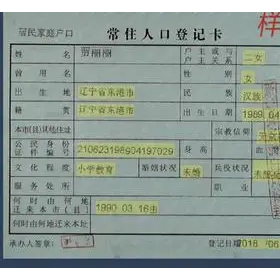 样
居民家庭户口 常住人口登记卡
姓名 户主或与户主关系 二女
曾用名 性别 女
出生地 辽宁省东港市 民族 汉族
籍贯 辽宁省东港市 出生日期 1989.04
本市(县)其他住址 宗教信仰
公民身份证件编号 210623198904197029 身高
文化程度 小学教育 婚姻状况 未婚 兵役状况
服务处所
何时由何地迁来本市(县) 1990.03.16由
何时由何地迁来本址
承办人签章: 登记日期:2018 06